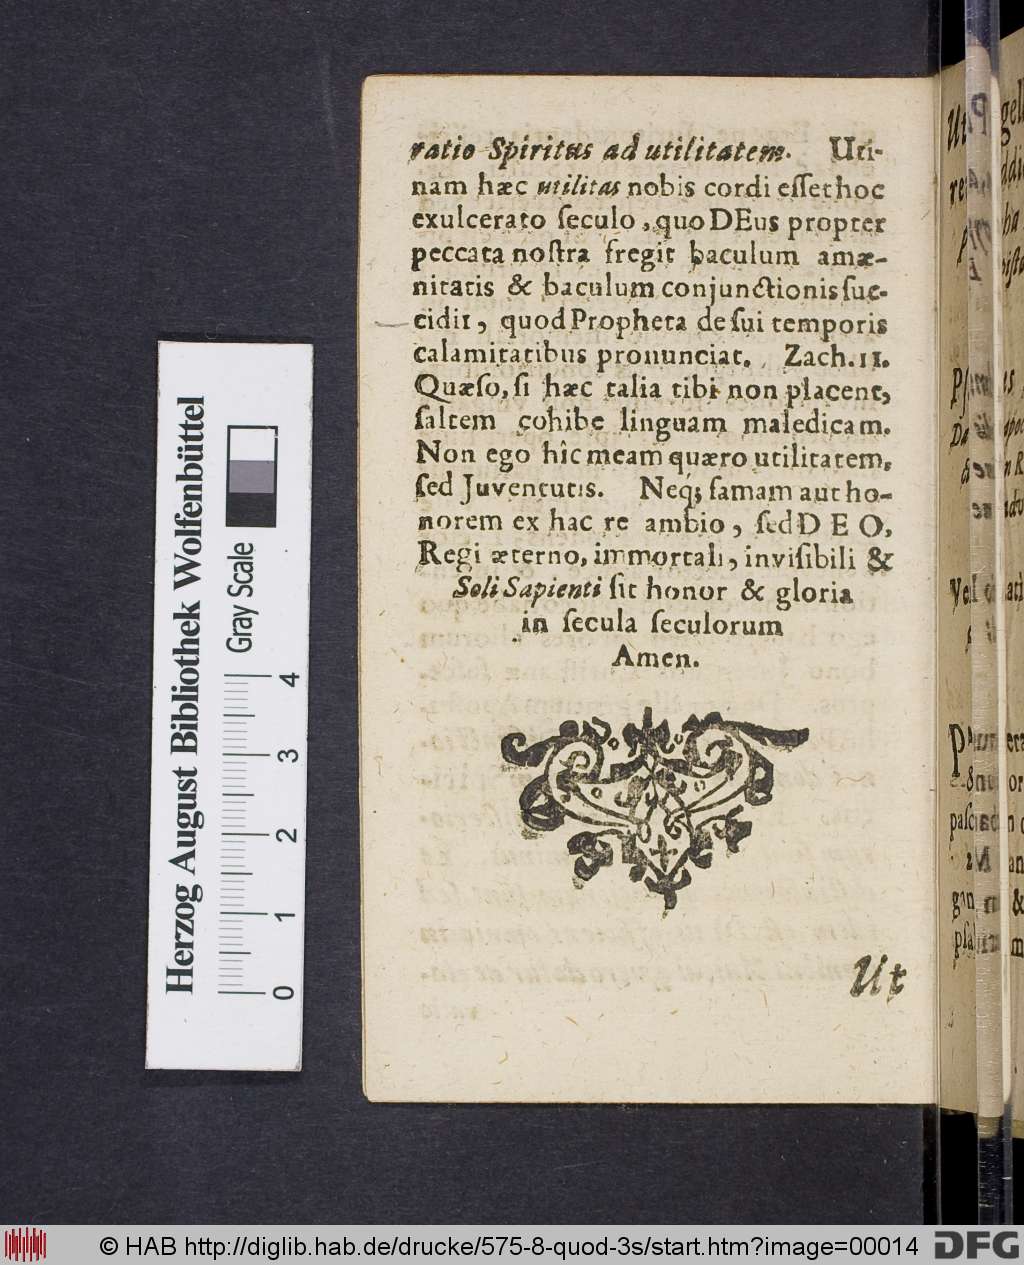 ratio Spiritus ad utilitatem. Uti-
nam hæc utilitas nobis cordi eſſet hoc
exulcerato ſeculo, quo DEus propter
peccata noſtra fregit baculum amæ-
nitatis & baculum conjunctionis ſuc-
cidit, quod Propheta de ſui temporis
calamitatibus pronunciat. Zach. 11.
Quæſo, ſi hæc talia tibi non placent,
ſaltem cohibe linguam maledicam.
Non ego hîc meam quæro utilitatem,
ſed Juventutis. Neq; famam aut ho-
norem ex hac re ambio, ſed DEO,
Regi æterno, immortali, inviſibili &
Soli Sapienti ſit honor & gloria
in ſecula ſeculorum
Amen.
Ut
Herzog August Bibliothek Wolfenbüttel
Gray Scale
0 1 2 3 4
© HAB http://diglib.hab.de/drucke/575-8-quod-3s/start.htm?image=00014
DFG